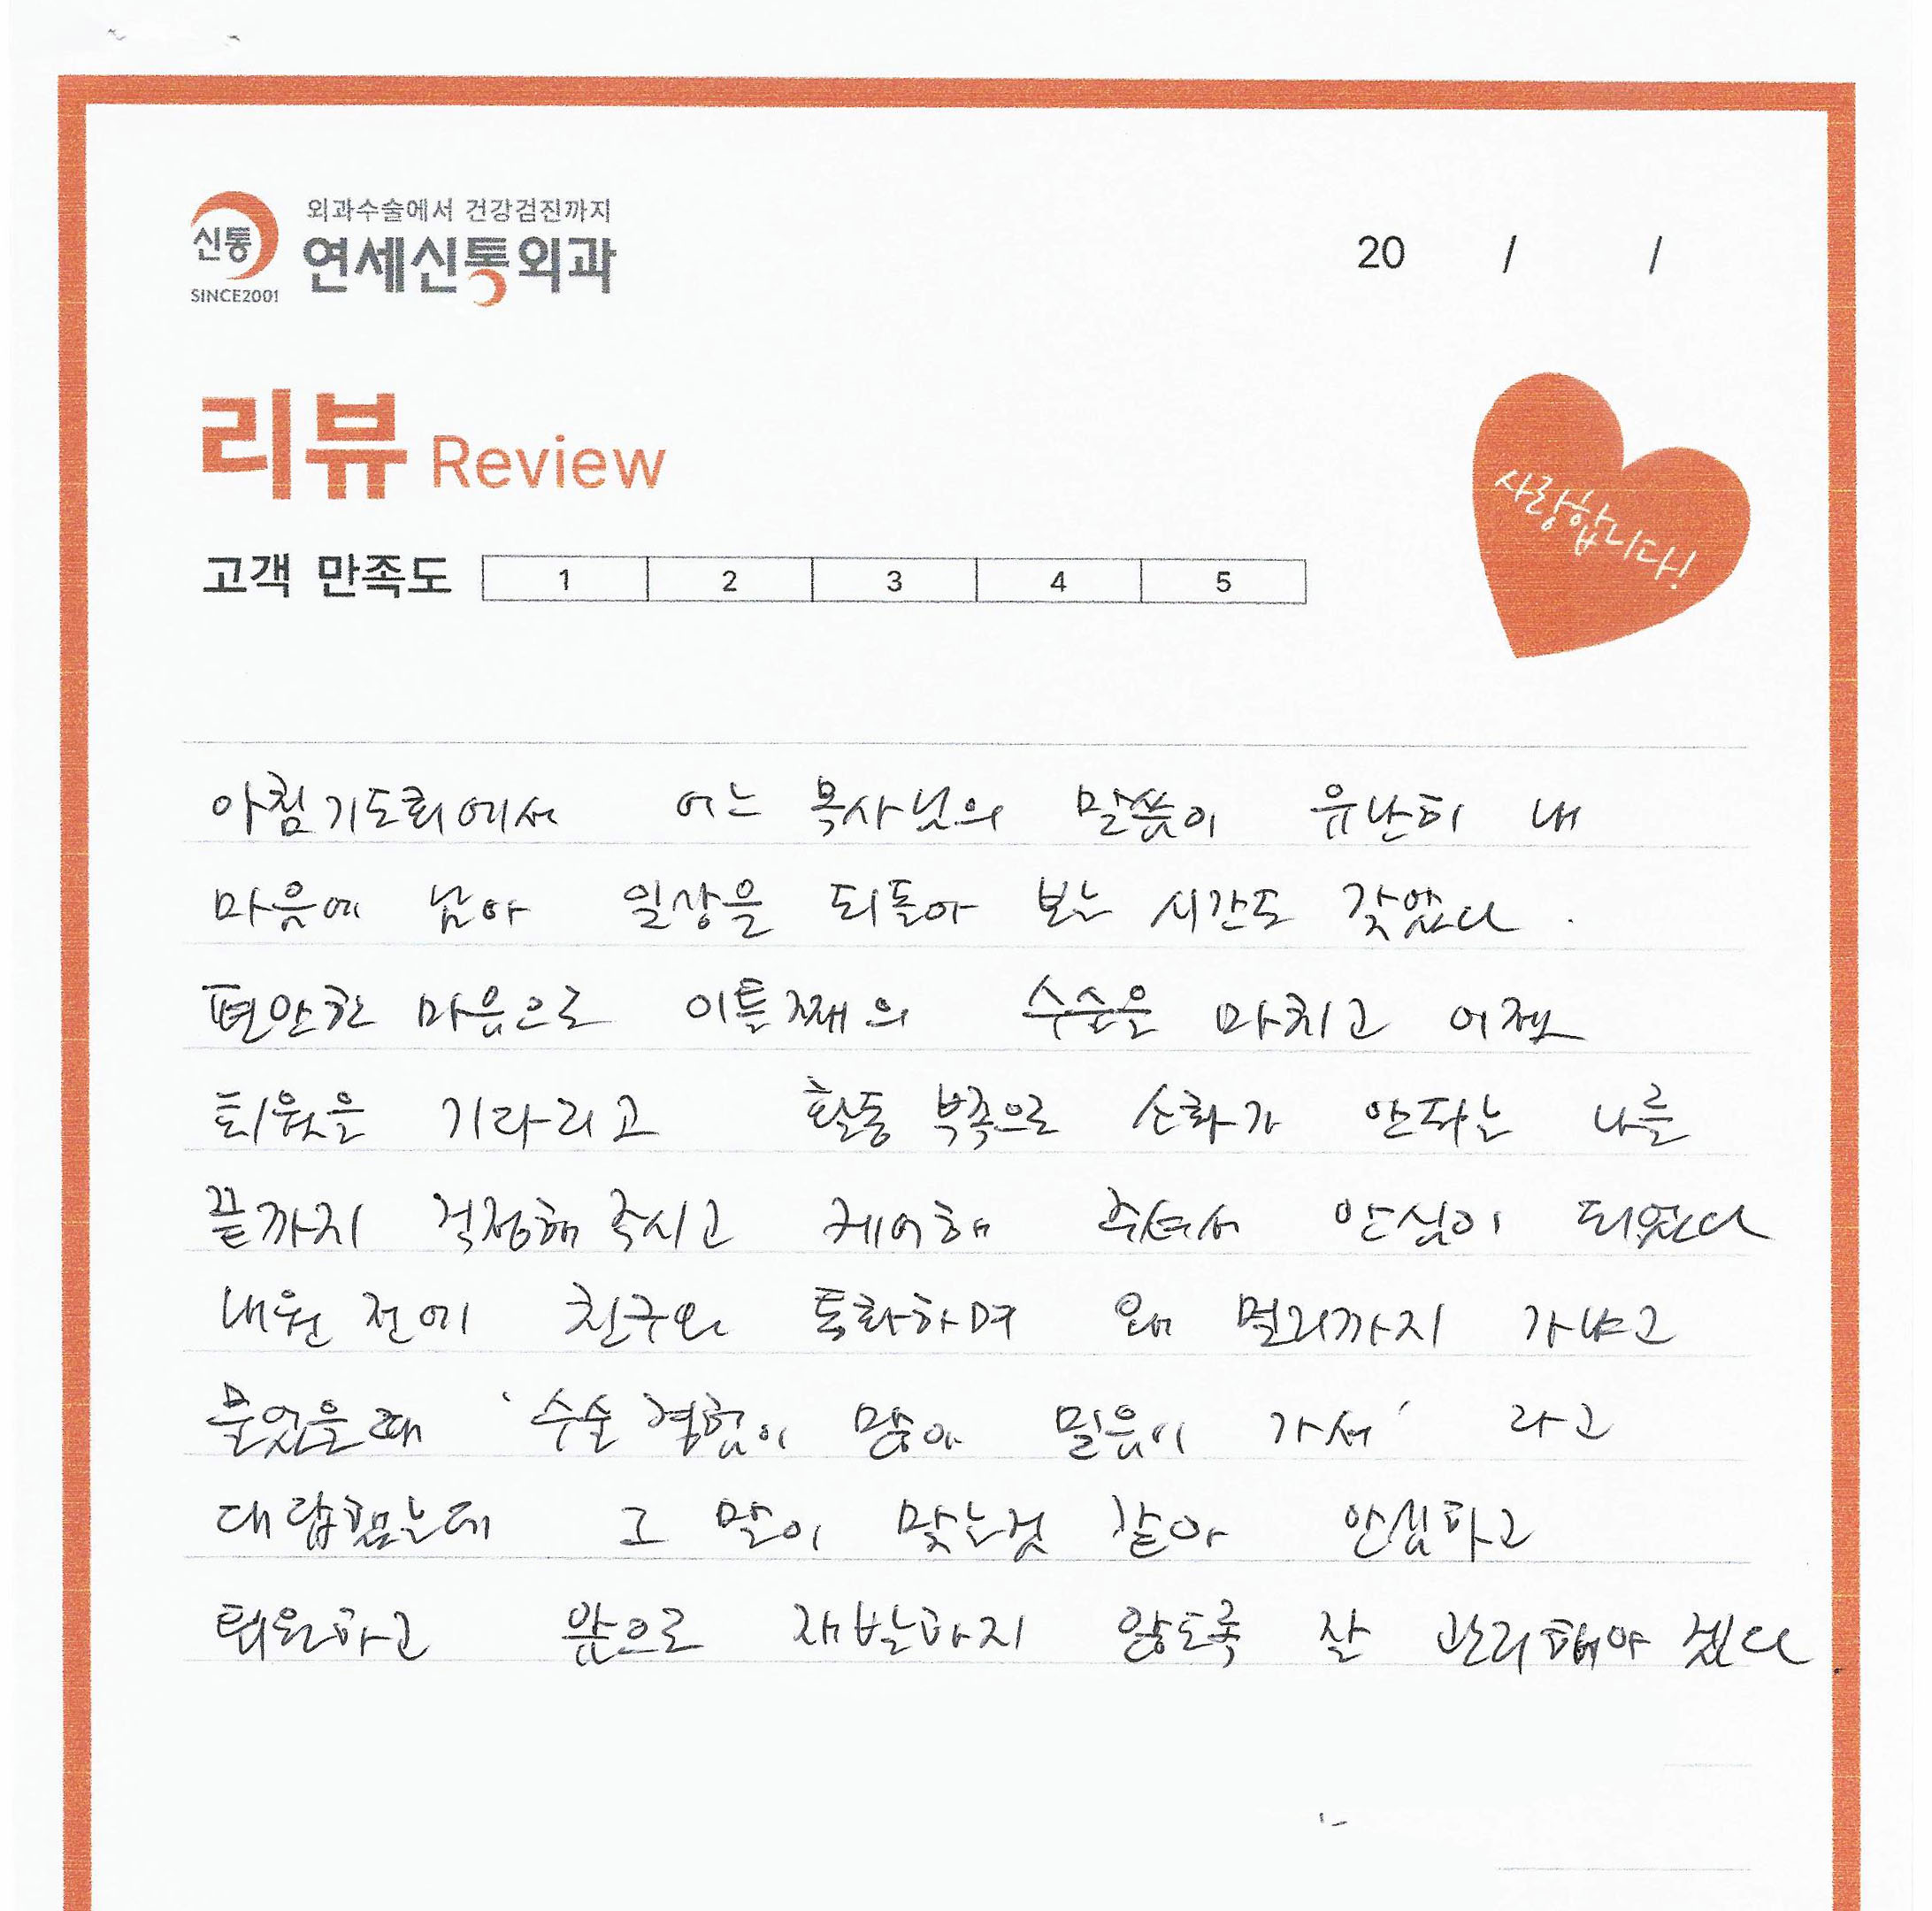 신통
SINCE2001
외과수술에서 건강검진까지
연세신통외과
20 / /
리뷰 Review
사랑합니다!
고객 만족도 1 2 3 4 5
아침기도회에서 어느 목사님의 말씀이 유난히 내
마음에 남아 일상을 되돌아 보는 시간도 갖었다.
편안한 마음으로 이틀째의 수술을 마치고 어제
퇴원을 기다리고 활동 부족으로 소화가 안되는 나를
끝까지 걱정해 주시고 케어해 주셔서 안심이 되었다
내원 전에 친구와 통화하며 왜 멀리까지 가냐고
물었을때 '수술 경험이 많아 믿음이 가서' 라고
대답했는데 그 말이 맞는것 같아 안심하고
퇴원하고 앞으로 재발하지 않도록 잘 관리해야 겠다.